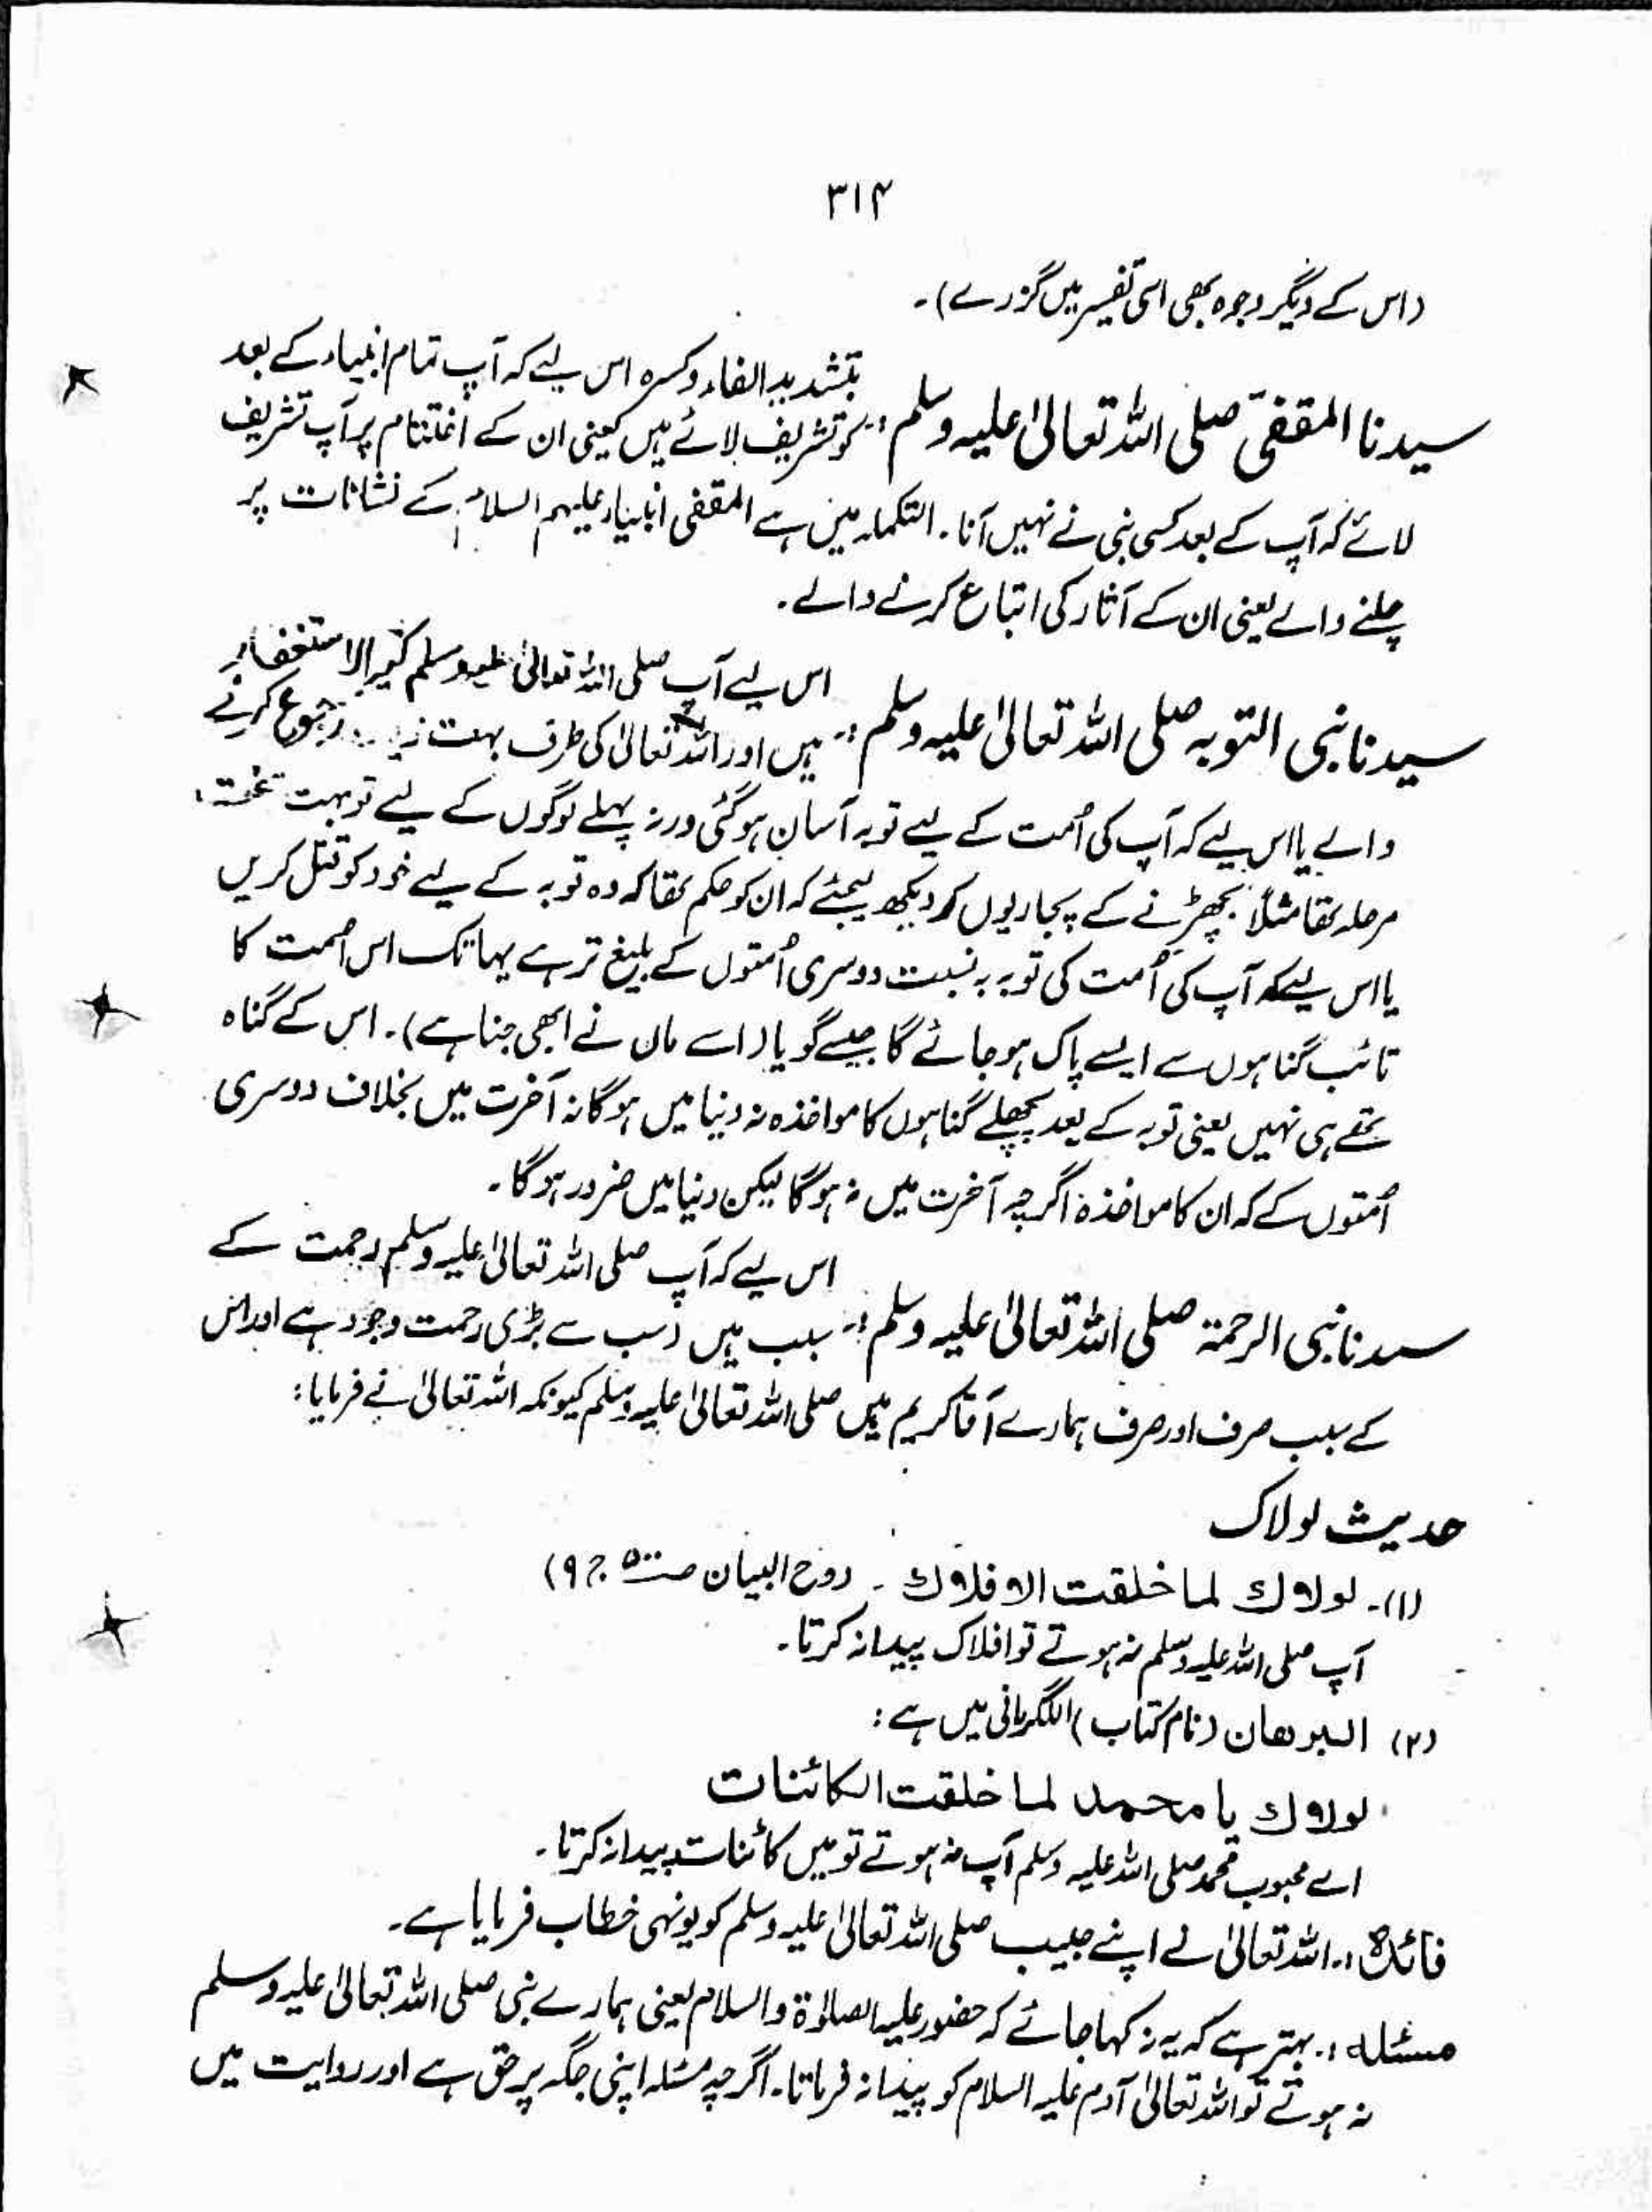 ۳۱۴
(اس کے دیگر وجوہ بھی اسی تفسیر میں گزرے)۔
سیدنا المقفیّ صلی اللہ تعالیٰ علیہ وسلم :۔ بتشدید الفاء وکسرہ اس لیے کہ آپ تمام انبیاء کے بعد
کو تشریف لائے ہیں یعنی ان کے اختتام پر آپ تشریف
لائے کہ آپ کے بعد کسی نبی نے نہیں آنا ۔ التکملہ میں ہے المقفی انبیاء علیہم السلام کے نشانات پر
چلنے والے یعنی ان کے آثار کی اتباع کرنے والے ۔
سیدنا نبی التوبہ صلی اللہ تعالیٰ علیہ وسلم :۔ اس لیے آپ صلی اللہ تعالیٰ علیہ وسلم کثیر الاستغفار
ہیں اور اللہ تعالیٰ کی طرف بہت رجوع کرنے
والے یا اس لیے کہ آپ کی اُمت کے لیے توبہ آسان ہوگئی ورنہ پہلے لوگوں کے لیے تو بہت سخت
مرحلہ تھا مثلاً بچھڑنے کے پجاریوں کو دیکھ لیجئے کہ ان کو حکم تھا کہ وہ توبہ کے لیے خود کو قتل کریں
یا اس لیے کہ آپ کی اُمت کی توبہ بہ نسبت دوسری اُمتوں کے بلیغ تر ہے یہاتک اس اُمت کا
تائب گناہوں سے ایسے پاک ہوجائے گا جیسے گویا (اسے ماں نے ابھی جنا ہے)۔ اس کے گناہ
تھے ہی نہیں یعنی توبہ کے بعد پچھلے گناہوں کا مواخذہ نہ دنیا میں ہوگا نہ آخرت میں بخلاف دوسری
اُمتوں کے کہ ان کا مواخذہ اگرچہ آخرت میں نہ ہوگا لیکن دنیا میں ضرور ہوگا ۔
سیدنا نبی الرحمۃ صلی اللہ تعالیٰ علیہ وسلم :۔ اس لیے کہ آپ صلی اللہ تعالیٰ علیہ وسلم رحمت کے
سبب ہیں (سب سے بڑی رحمت وجود ہے اور اس
کے سبب صرف اور صرف ہمارے آقا کریم ہیں صلی اللہ تعالیٰ علیہ وسلم کیونکہ اللہ تعالیٰ نے فرمایا :
حدیث لولاک
(۱)۔ لولاك لما خلقت الافلاك ۔ روح البیان ص۵۰۰ ج۹)
آپ صلی اللہ علیہ وسلم نہ ہوتے تو افلاک پیدا نہ کرتا ۔
(۲) البرھان (نام کتاب) للکرمانی میں ہے :
لولاك یا محمد لما خلقت الکائنات
اے محبوب محمد صلی اللہ علیہ وسلم آپ نہ ہوتے تو میں کائنات پیدا نہ کرتا ۔
فائدہ :۔ اللہ تعالیٰ نے اپنے حبیب صلی اللہ تعالیٰ علیہ وسلم کو یونہی خطاب فرمایا ہے ۔
مسئلہ :۔ بہتر ہے کہ یہ نہ کہا جائے کہ حضور علیہ الصلوٰۃ والسلام یعنی ہمارے نبی صلی اللہ تعالیٰ علیہ وسلم
نہ ہوتے تو اللہ تعالیٰ آدم علیہ السلام کو پیدا نہ فرماتا ۔ اگرچہ مسئلہ اپنی جگہ پر حق ہے اور روایت میں